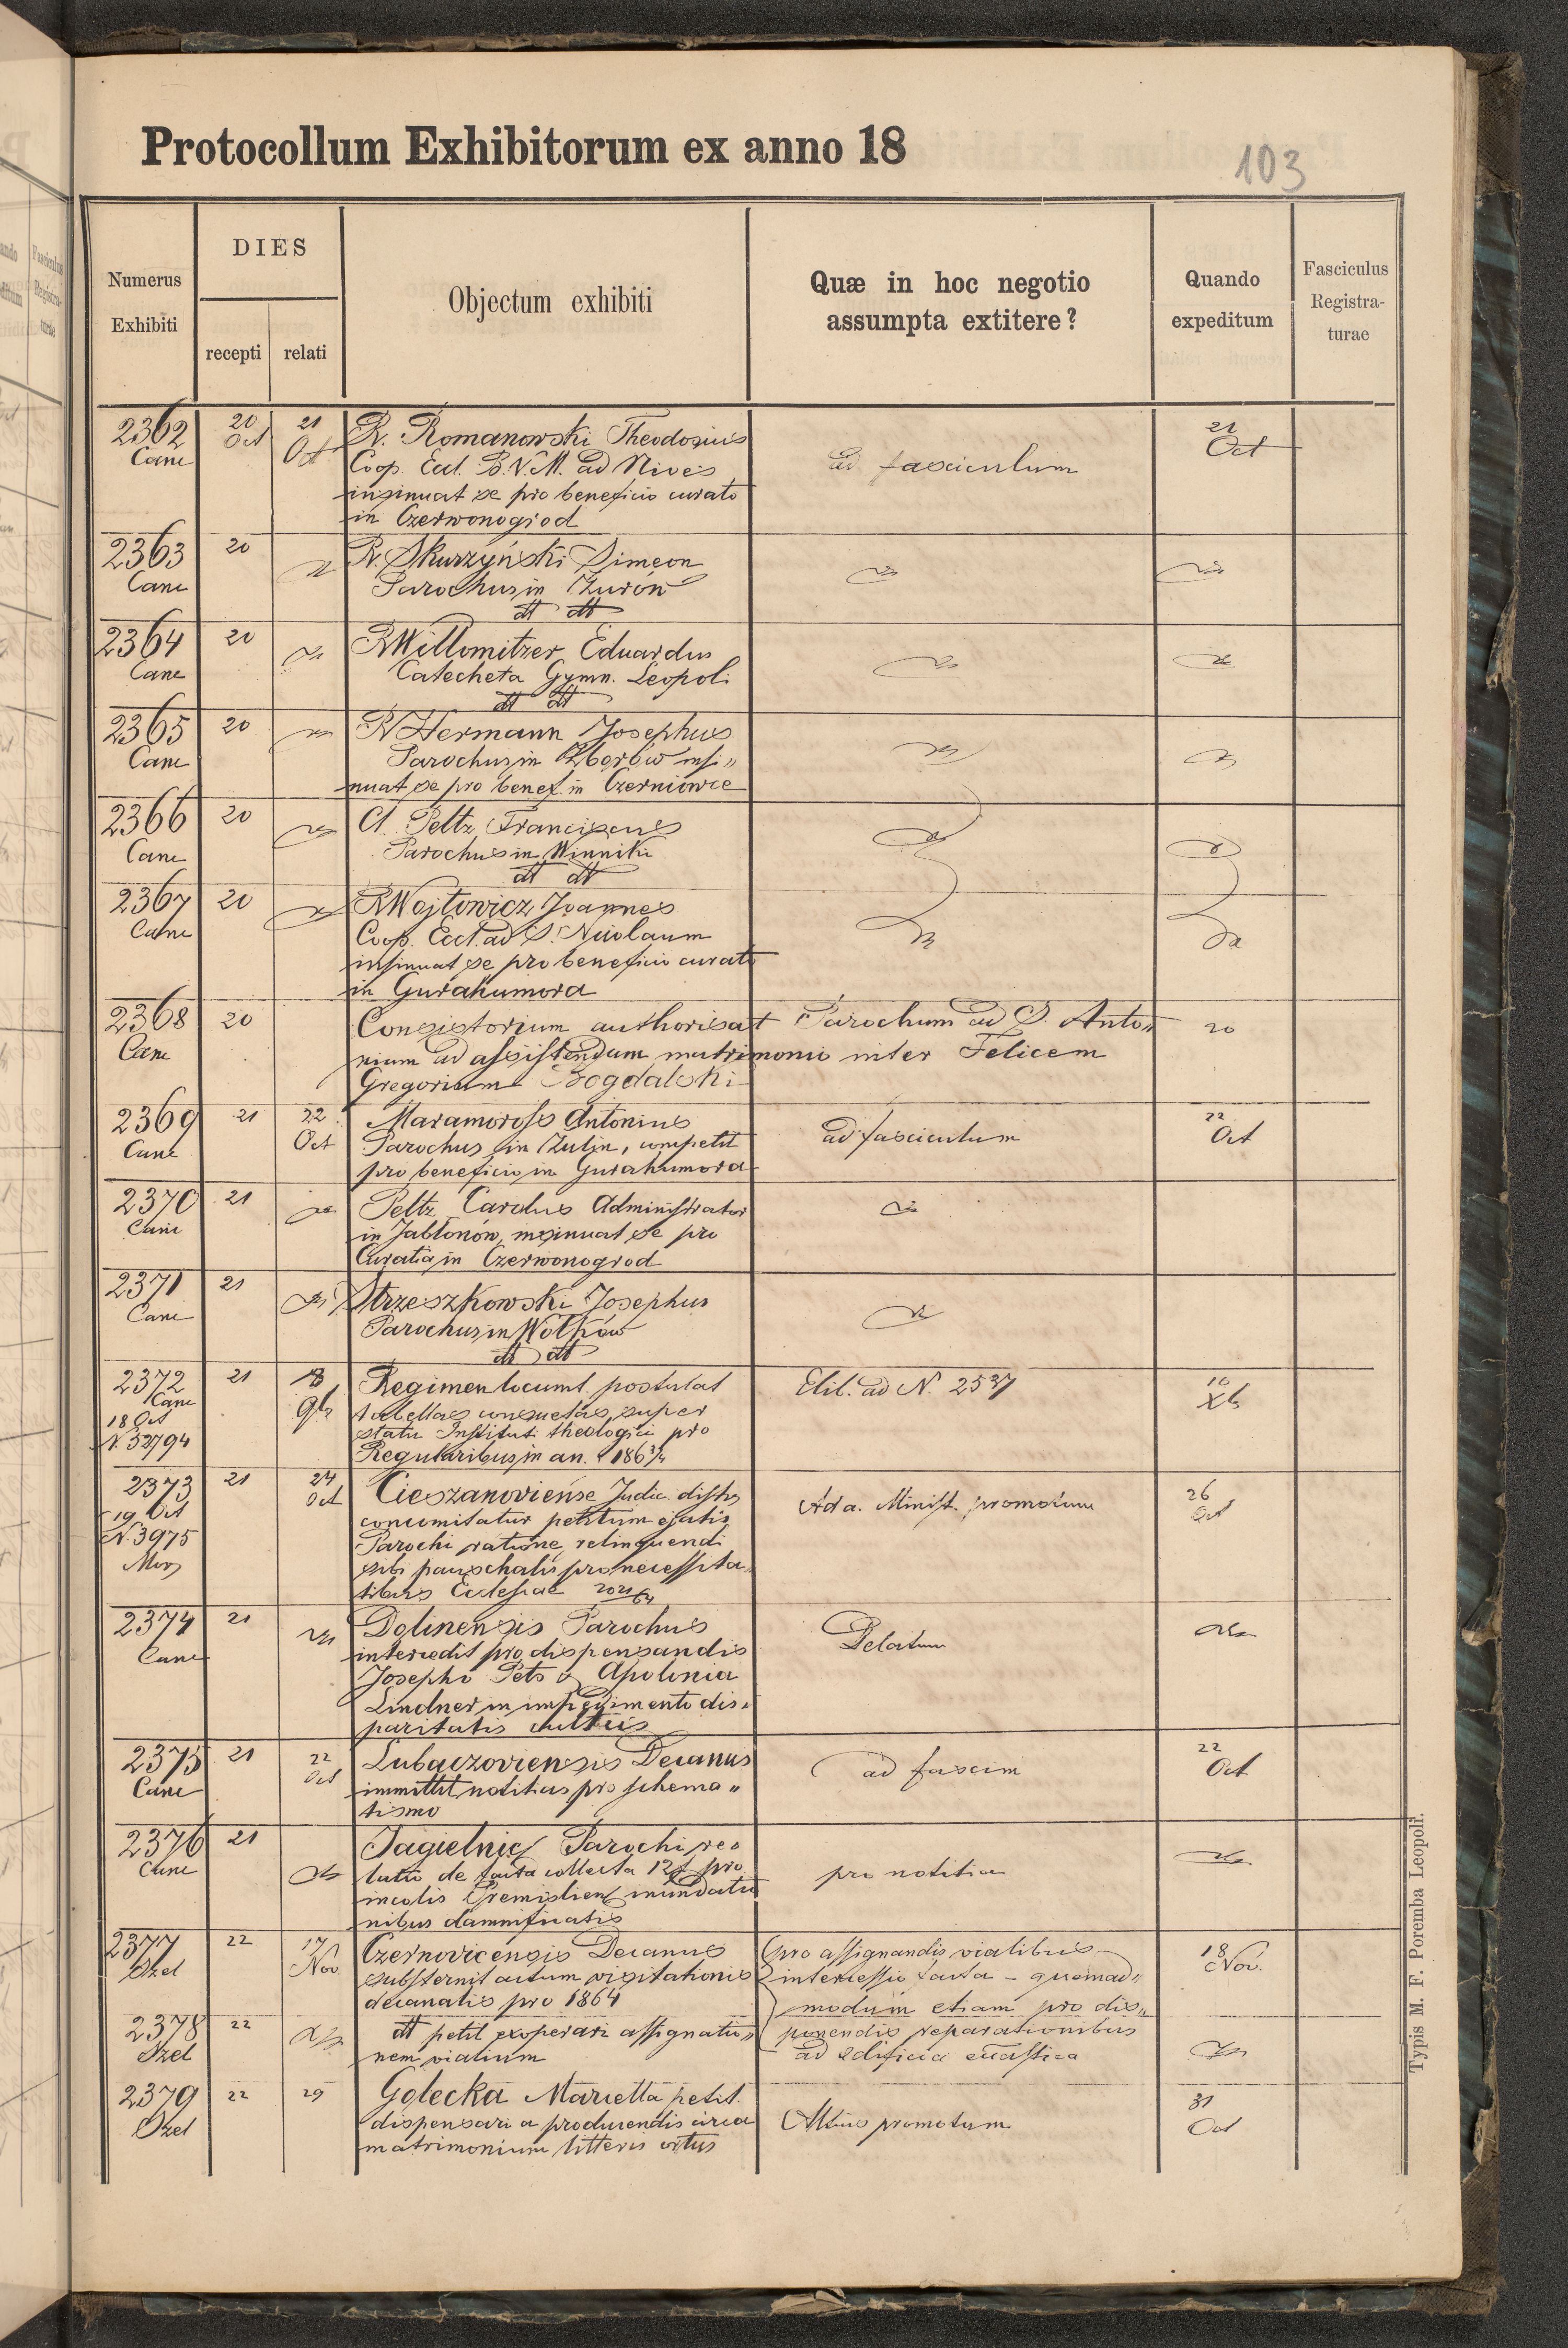 Protocollum Exhibitorum ex anno 18
103
Numerus Exhibiti
DIES
recepti
relati
Objectum exhibiti
Quæ in hoc negotio
assumpta extitere?
Quando
expeditum
Fasciculus
Registra-
turae
2362 20 21 R. Romanowski Theodosius 21
Canc Oct Oct Coop. Eccl. B.V.M. ad Nives ad fasciculum Oct
insinuat se pro beneficio curato
in Czerwonogrod
2363 20 R. Skurzyński Simeon
Canc Parochus in Zurów
dt dt
2364 20 R Willomitzer Eduardus
Canc Catecheta Gymn. Leopoli
dt dt
2365 20 R Hermann Josephus
Canc Parochus in Zborów insi„
nuat se pro benef. in Czerniowce
2366 20 Cl. Peltz Franciscus
Canc Parochus in Winniki
dt dt
2367 20 R Wojtowicz Joannes
Canc Coop. Eccl. ad S. Nicolaum
insinuat se pro beneficio curato
in Gurahumora
2368 20 Consistorium authorisat Parochum ad S. Anto„ 20
Canc nium ad assistendum matrimonio inter Felicem
Gregorium Bogdalski
2369 21 22 Maramoross Antonius 22
Canc Oct Parochus in Zulin, competit ad fasciculum Oct
pro beneficio in Gurahumora
2370 21 Peltz Carolus Administrator
Canc in Jablonów, insinuat se pro
Curatia in Czerwonogrod
2371 21 Strzeszkowski Josephus
Canc Parochus in Wołków
dt dt
2372 21 18 Regimen locumt. postulat Elil. ad N. 2537 10
Canc 9b tabellas consuetas super Xb
18 Oct statu Instituti theologici pro
N. 52794 Regularibus in an. 1863/4
2373 21 24 Cieszanoviense Judic. distr. Ad a. Minist. promotum 26
19 Oct Oct concomitatur petitum ejatis Oct
N. 3975 Parochi ratione relinquendi
sibi pauschalis pro necessita„
tibus Ecclesiae
2374 21 Dolinensis Parochus
Canc intercedit pro dispensandis Delatum
Josepho Pets & Apolonia
Lindner in impedimento dis„
paritatis cultus
2375 21 22 Lubaczoviensis Decanus 22
Canc Oct immittit notitias pro schema„ ad fascim Oct
tismo
2376 21 Jagielnic Parochi re„
Canc latio de facta collecta 12 f pro pro notitia
incolis Premislien inundatio
nibus damnificatis
2377 22 17 Czernovicensis Decanus pro assignandis vialibus 18
Ozel Nov. substernit actum visitationis intercessio facta - quemad„ Nov.
decanalis pro 1864 modum etiam pro dis„
2378 22 dt petit exoperari assignatio„ ponendis reparationibus
Ozel nem vialium ad edificia
2379 22 29 Golecka Marietta petit 31
Ozel dispensari a producendis circa Altius promotum Oct
matrimonium litteris ortus
Typis M. F. Poremba Leopoli.